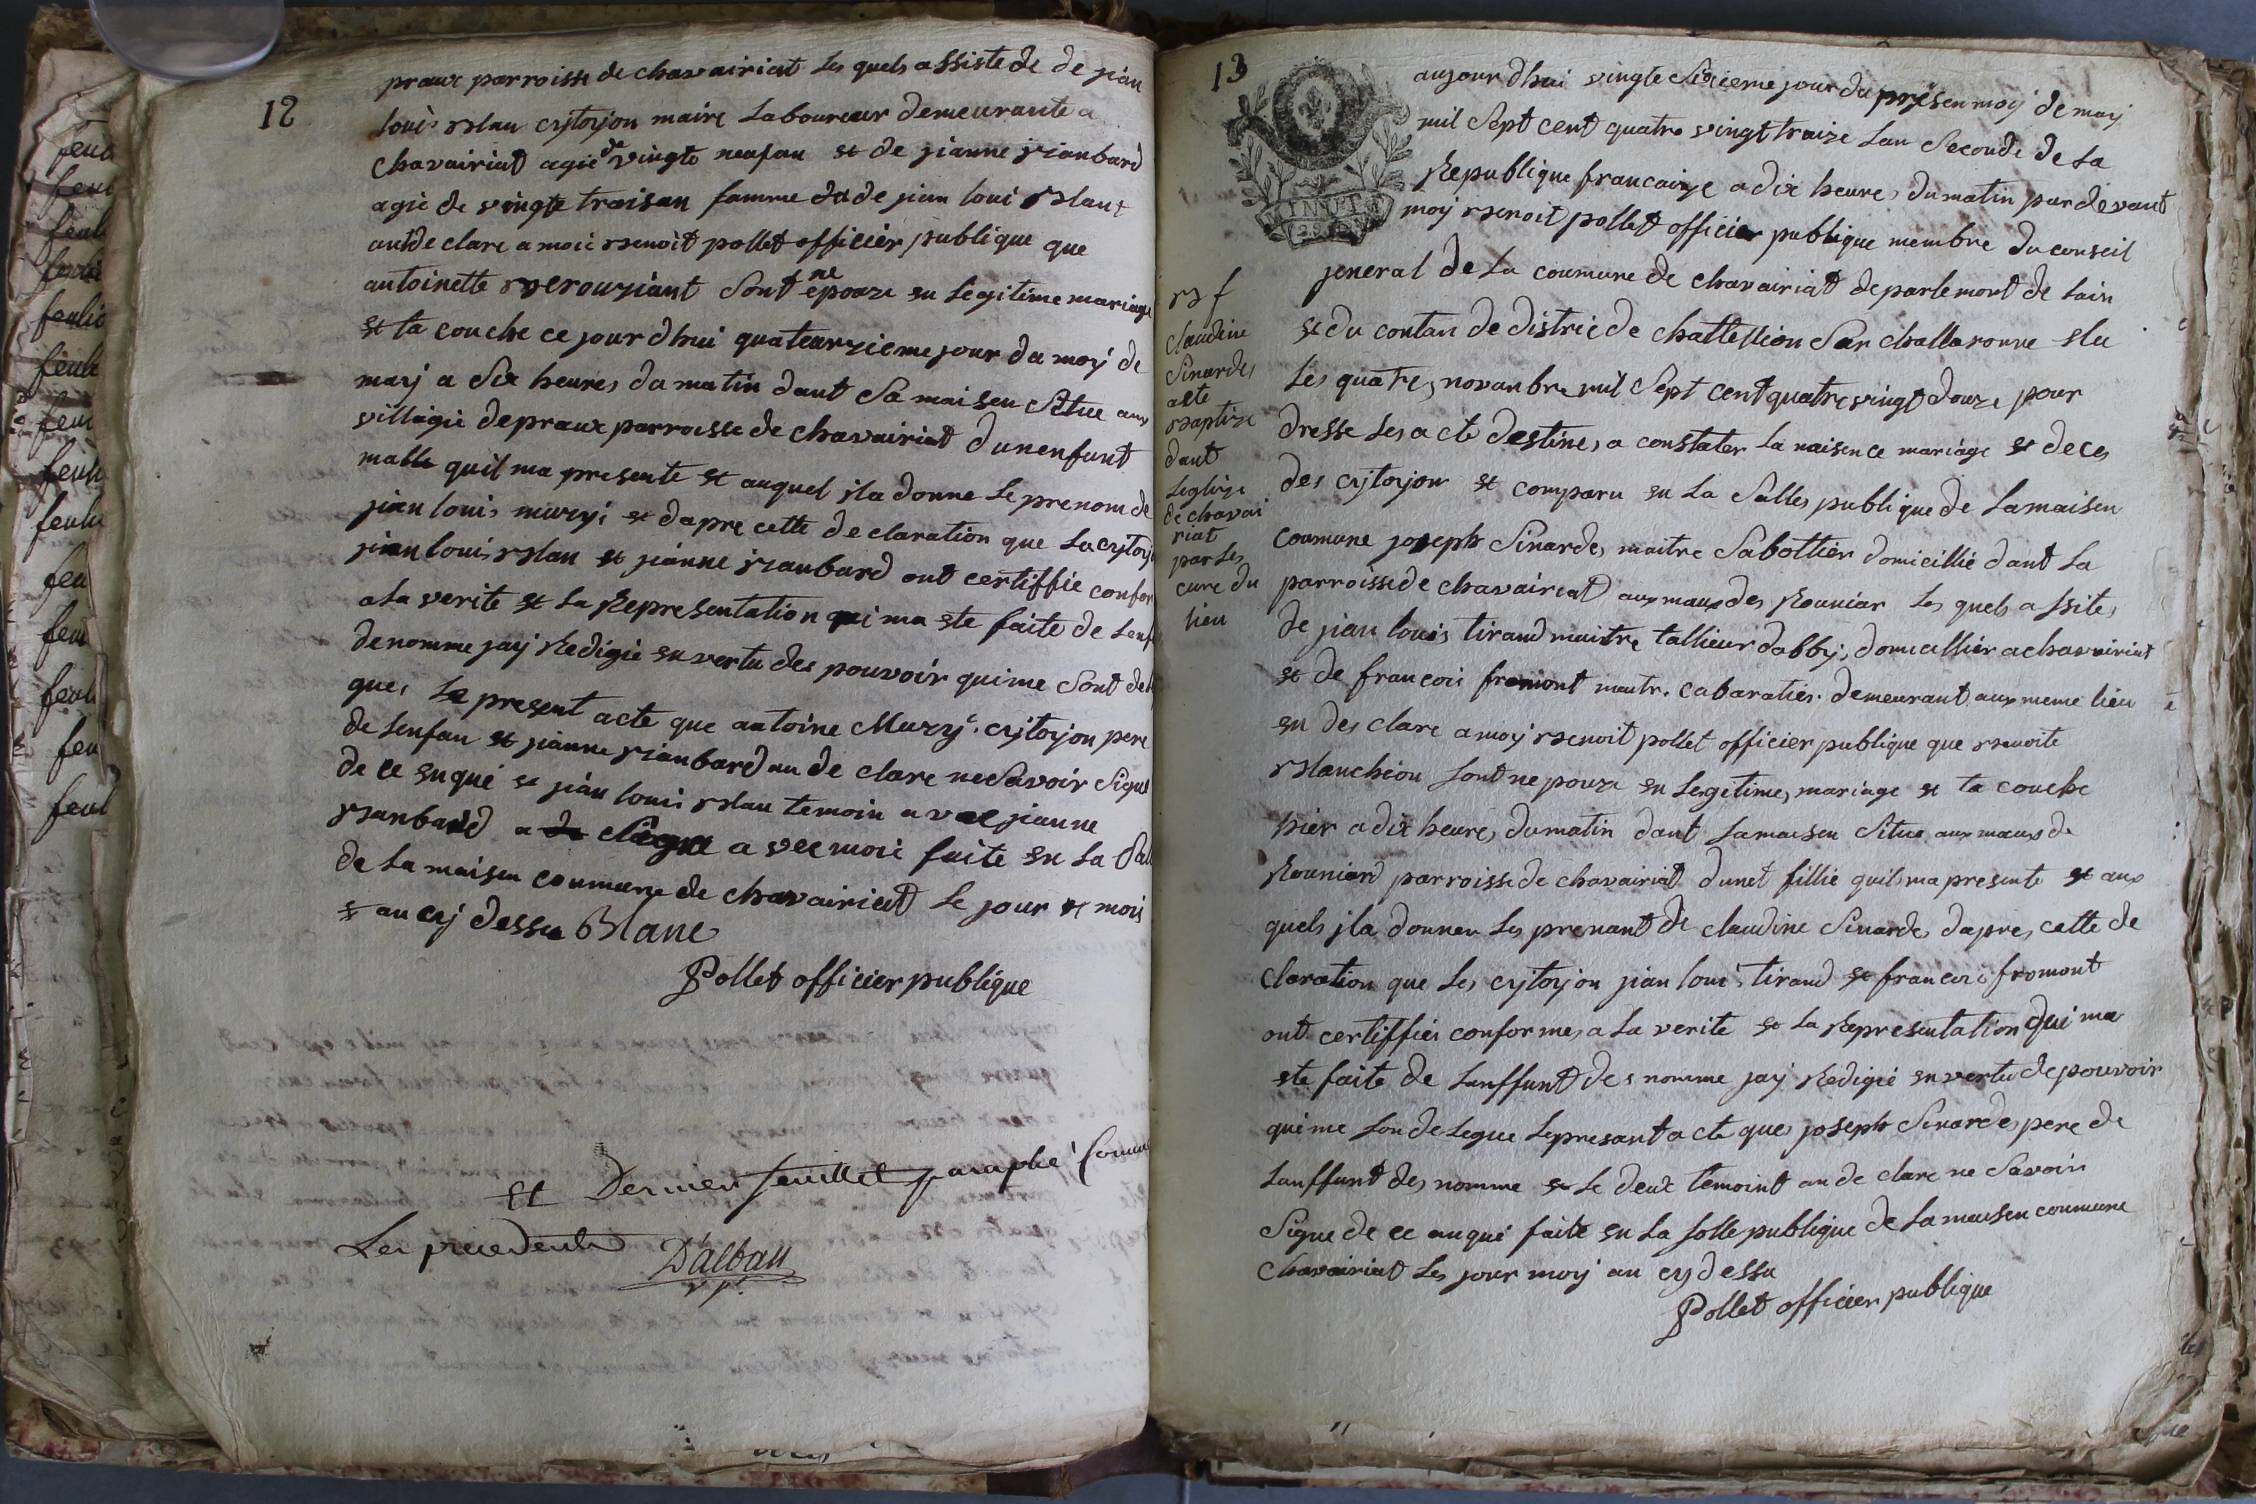 12
praux parroisse de chavairiat les quels assiste de de jian
loui Blan cytoyon maire laboureur demeurante a
chavairiat agié de vingte neufan et de jianne janbard
agié de vingte troisan famme du de jian loui Blant
ont de clare a moi benoit pollet officier publique que
antoinette verouziant sont ne epouze en legitime mariage
et ta couche ce jour dhui quateurzieme jour du moy de
mayj a six heures du matin dant sa maisen situe aux
villagie de praux parroisse de chavairiat dunenfant
malle quil ma presente et auquel jla donne le prenom de
jian louis muzyi et dapre cette de claration que la cytoy
jian loui Blan et jianne janbard ont certiffie confor
a la verite et la Representation qui ma ete faite de lenf
denomme jay Redigié en vertu des pouvoir qui me sont de
gue le present acte que antoine Muzy cytoyon pere
de lenfan et jianne janbard an de clare ne savoir signe
de ce enqui et jian loui Blan temoin avec jianne
janbard a signe avec moi faite en la Sall
de la maisen coumune de chavairiat le jour et mois
et an cy dessu Blanc
Pollet officier publique
et Dernier feuillet paraphé comme
Les precedents D'alban
v. p.
13
MINUTE
aujour dhui vingte sixieme jour du presen moy de may
mil sept cent quatre vingt traize lan seconde de la
Republique francaize a dix heures du matin par devant
moy benoit pollet officier publique membre du conseil
jeneral de la coumune de chavairiat departemont de lain
et du contan de distric de chattellion sur challaronne elu
les quatres novanbre mil sept cent quatre vingt douze pour
dresse les acte destines a constater la naisence mariage et deces
des cytoyon et comparu en la salles publique de lamaisen
coumune joseph sinardes maitre sabottier domicillié dant la
parroisse de chavairiat aux maux des Rouniar les quels assites
de jian louis tirand maitre tallieur dabby domicillier a chavairiat
et de francois fromont maitre cabaratier demeurant aux meme lieu
en des clare a moy benoit pollet officier publique que benoite
Blanchion sont ne pouze en legetimes mariage et ta couche
hier a dix heures du matin dant la maisen situe aux maux de
Rouniard parroisse de chavairiat dunet fillie quil ma presente et aux
quels jla donner les prenant de claudine sinardes dapres cette de
claration que les cytoyon jian loui tirand et francoi fromont
ont certiffiés conformes a la verite et la Representation qui ma
ete faite de lanffant des nomme jay Redigié en vertu de pouvoir
qui me son delegue le presant acte que joseph Sinardes pere de
lanffant des nomme et le deux temoint an de clare ne savoir
signe de ce auqui faite en la solle publique de la maisen coumune
chavairiat les jour moy an cy dessu
Pollet officier publique
B f
claudine
Sinardes
a ete
baptize
dant
leglize
de chavai
riat
par les
cure du
lieu
feul
feul
feul
feulie
feulie
feule
feul
feule
feule
feu
feul
feuli
feu
feul